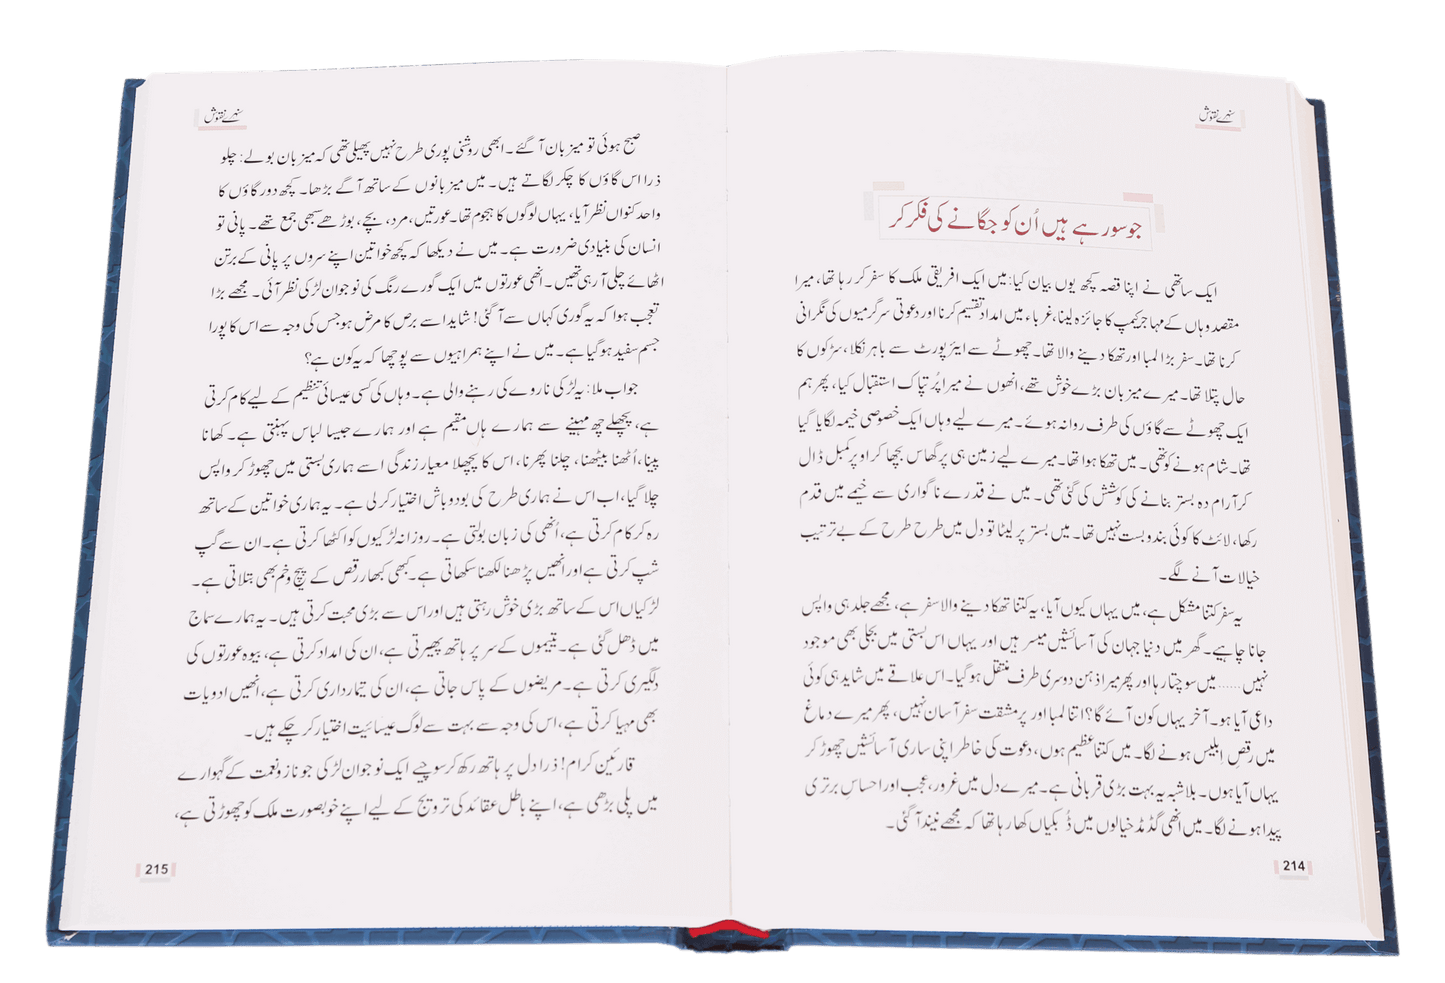 سنہرے نقوش
جو سو رہے ہیں اُن کو جگانے کی فکر کر
ایک ساتھی نے اپنا قصہ کچھ یوں بیان کیا: میں ایک افریقی ملک کا سفر کر رہا تھا، میرا
مقصد وہاں کے مہاجر کیمپ کا جائزہ لینا، غرباء میں امداد تقسیم کرنا اور دعوتی سرگرمیوں کی نگرانی
کرنا تھا۔ سفر بڑا لمبا اور تھکا دینے والا تھا۔ چھوٹے سے ایئرپورٹ سے باہر نکلا، سڑکوں کا
حال پتلا تھا۔ میرے میزبان بڑے خوش تھے، انھوں نے میرا پُرتپاک استقبال کیا، پھر ہم
ایک چھوٹے سے گاؤں کی طرف روانہ ہوئے۔ میرے لیے وہاں ایک خصوصی خیمہ لگایا گیا
تھا۔ شام ہونے کو تھی۔ میں تھکا ہوا تھا۔ میرے لیے زمین ہی پر گھاس بچھا کر اوپر کمبل ڈال
کر آرام دہ بستر بنانے کی کوشش کی گئی تھی۔ میں نے قدرے ناگواری سے خیمے میں قدم
رکھا، لائٹ کا کوئی بندوبست نہیں تھا۔ میں بستر پر لیٹا تو دل میں طرح طرح کے بے ترتیب
خیالات آنے لگے۔
یہ سفر کتنا مشکل ہے، میں یہاں کیوں آیا، یہ کتنا تھکا دینے والا سفر ہے، مجھے جلد ہی واپس
جانا چاہیے۔ گھر میں دنیا جہان کی آسائشیں میسر ہیں اور یہاں اس بستی میں بجلی بھی موجود
نہیں...... میں سوچتا رہا اور پھر میرا ذہن دوسری طرف منتقل ہو گیا۔ اس علاقے میں شاید ہی کوئی
داعی آیا ہو۔ آخر یہاں کون آئے گا؟ اتنا لمبا اور پر مشقت سفر آسان نہیں، پھر میرے دماغ
میں رقصِ ابلیس ہونے لگا۔ میں کتنا عظیم ہوں، دعوت کی خاطر اپنی ساری آسائشیں چھوڑ کر
یہاں آیا ہوں۔ بلاشبہ یہ بہت بڑی قربانی ہے۔ میرے دل میں غرور، عجب اور احساسِ برتری
پیدا ہونے لگا۔ میں انھی گڈمڈ خیالوں میں ڈبکیاں کھا رہا تھا کہ مجھے نیند آ گئی۔
214
سنہرے نقوش
صبح ہوئی تو میزبان آ گئے۔ ابھی روشنی پوری طرح نہیں پھیلی تھی کہ میزبان بولے: چلو
ذرا اس گاؤں کا چکر لگاتے ہیں۔ میں میزبانوں کے ساتھ آگے بڑھا۔ کچھ دور گاؤں کا
واحد کنواں نظر آیا، یہاں لوگوں کا ہجوم تھا۔ عورتیں، مرد، بچے، بوڑھے سبھی جمع تھے۔ پانی تو
انسان کی بنیادی ضرورت ہے۔ میں نے دیکھا کہ کچھ خواتین اپنے سروں پر پانی کے برتن
اٹھائے چلی آ رہی تھیں۔ انھی عورتوں میں ایک گورے رنگ کی نوجوان لڑکی نظر آئی۔ مجھے بڑا
تعجب ہوا کہ یہ گوری کہاں سے آ گئی! شاید اسے برص کا مرض ہو جس کی وجہ سے اس کا پورا
جسم سفید ہو گیا ہے۔ میں نے اپنے ہمراہیوں سے پوچھا کہ یہ کون ہے؟
جواب ملا: یہ لڑکی ناروے کی رہنے والی ہے۔ وہاں کی کسی عیسائی تنظیم کے لیے کام کرتی
ہے، پچھلے چھ مہینے سے ہمارے ہاں مقیم ہے اور ہمارے جیسا لباس پہنتی ہے۔ کھانا
پینا، اُٹھنا بیٹھنا، چلنا پھرنا، اس کا پچھلا معیار زندگی اسے ہماری بستی میں چھوڑ کر واپس
چلا گیا، اب اس نے ہماری طرح کی بودوباش اختیار کر لی ہے۔ یہ ہماری خواتین کے ساتھ
رہ کر کام کرتی ہے، اُنھی کی زبان بولتی ہے۔ روزانہ لڑکیوں کو اکٹھا کرتی ہے۔ ان سے گپ
شپ کرتی ہے اور انھیں پڑھنا لکھنا سکھاتی ہے۔ کبھی کبھار رقص کے پیچ و خم بھی بتلاتی ہے۔
لڑکیاں اس کے ساتھ بڑی خوش رہتی ہیں اور اس سے بڑی محبت کرتی ہیں۔ یہ ہمارے سماج
میں ڈھل گئی ہے۔ یتیموں کے سر پر ہاتھ پھیرتی ہے، ان کی امداد کرتی ہے، بیوہ عورتوں کی
دلگیری کرتی ہے۔ مریضوں کے پاس جاتی ہے، ان کی تیمارداری کرتی ہے، انھیں ادویات
بھی مہیا کرتی ہے، اس کی وجہ سے بہت سے لوگ عیسائیت اختیار کر چکے ہیں۔
قارئین کرام! ذرا دل پر ہاتھ رکھ کر سوچیے ایک نوجوان لڑکی جو ناز و نعمت کے گہوارے
میں پلی بڑھی ہے، اپنے باطل عقائد کی ترویج کے لیے اپنے خوبصورت ملک کو چھوڑتی ہے،
215